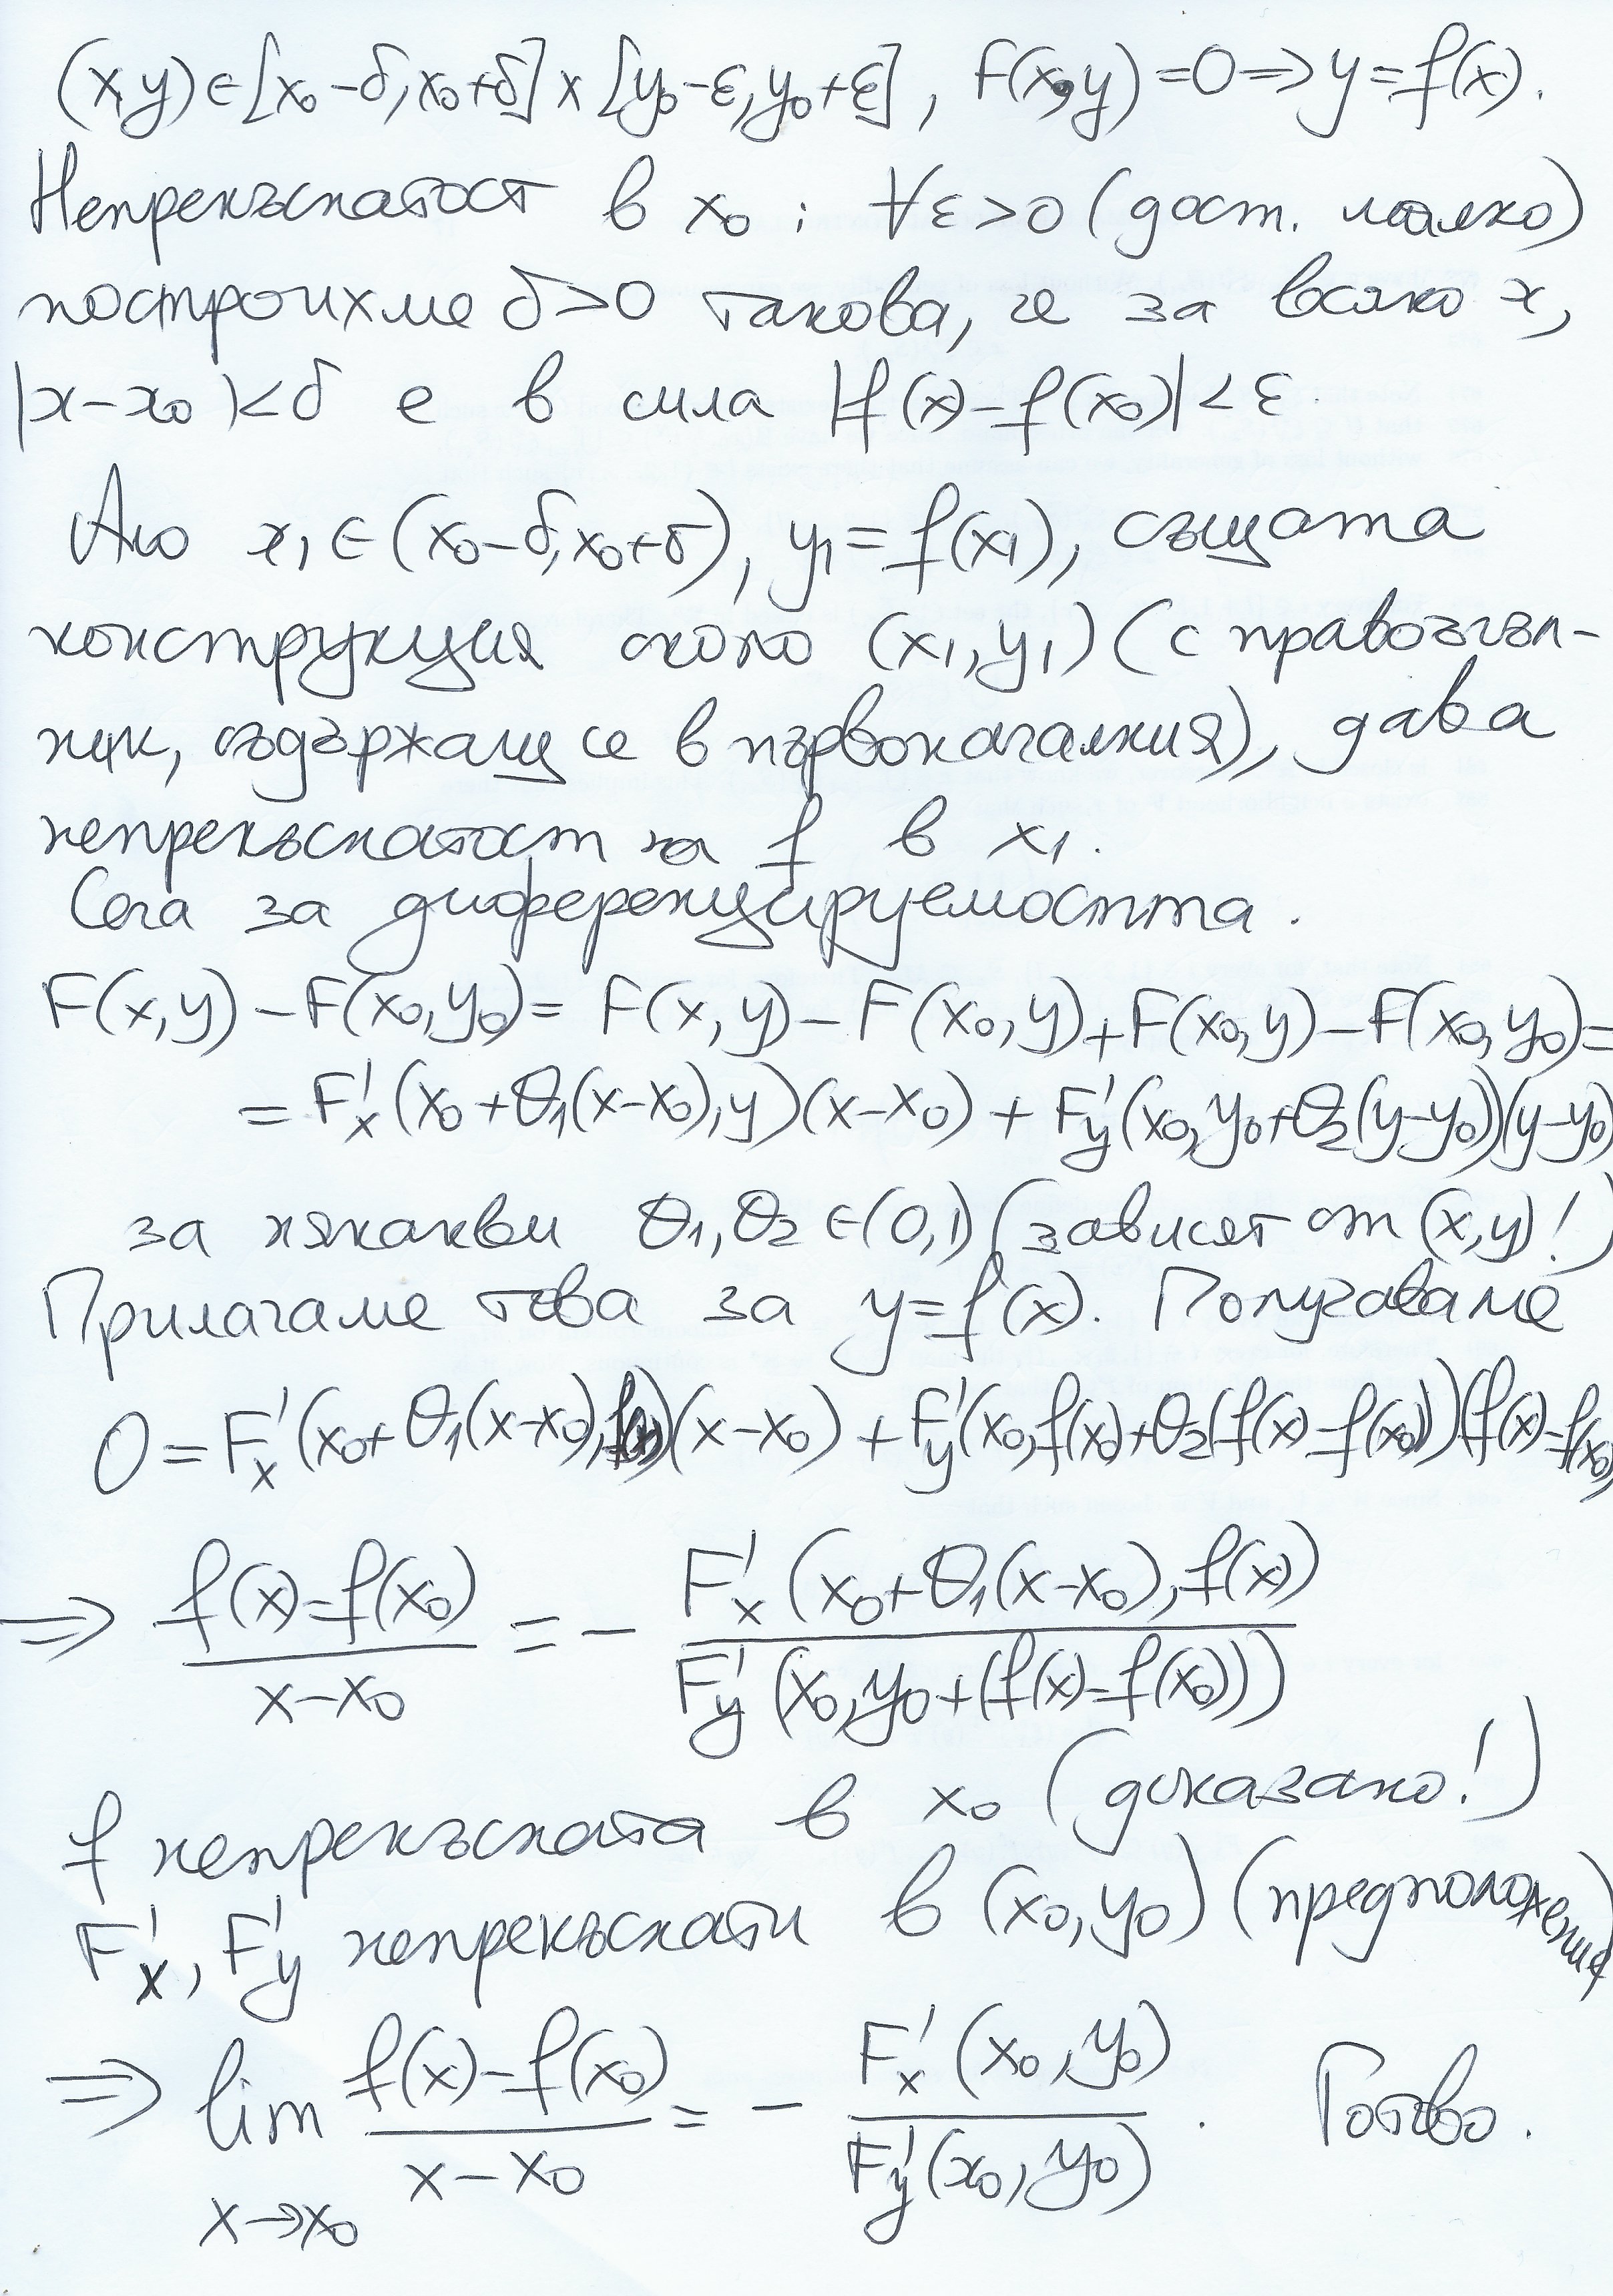 (x,y)∈[x₀-δ,x₀+δ]×[y₀-ε,y₀+ε], F(x,y)=0⇒y=f(x).
Непрекъснатост в x₀: ∀ε>0 (дост. малко)
построихме δ>0 такова, че за всяко x,
|x-x₀|<δ е в сила |f(x)-f(x₀)|<ε.
Ако x₁∈(x₀-δ,x₀+δ), y₁=f(x₁), същата
конструкция около (x₁,y₁) (с правоъгъл-
ник, съдържащ се в първоначалния), дава
непрекъснатост на f в x₁.
Сега за диференцируемостта.
F(x,y)-F(x₀,y₀)= F(x,y)-F(x₀,y)+F(x₀,y)-F(x₀,y₀)=
= F'ₓ(x₀+θ₁(x-x₀),y)(x-x₀) + F'_y(x₀,y₀+θ₂(y-y₀))(y-y₀)
за някакви θ₁,θ₂∈(0,1) (зависят от (x,y)!)
Прилагаме това за y=f(x). Получаваме
0=F'ₓ(x₀+θ₁(x-x₀),f(x))(x-x₀)+F'_y(x₀,f(x₀)+θ₂(f(x)-f(x₀)))(f(x)-f(x₀)
⇒ (f(x)-f(x₀))/(x-x₀) = - F'ₓ(x₀+θ₁(x-x₀),f(x))/F'_y(x₀,y₀+(f(x)-f(x₀)))
f непрекъсната в x₀ (доказано!)
F'ₓ, F'_y непрекъснати в (x₀,y₀) (предположение)
⇒ lim x→x₀ (f(x)-f(x₀))/(x-x₀) = - F'ₓ(x₀,y₀)/F'_y(x₀,y₀). Готово.